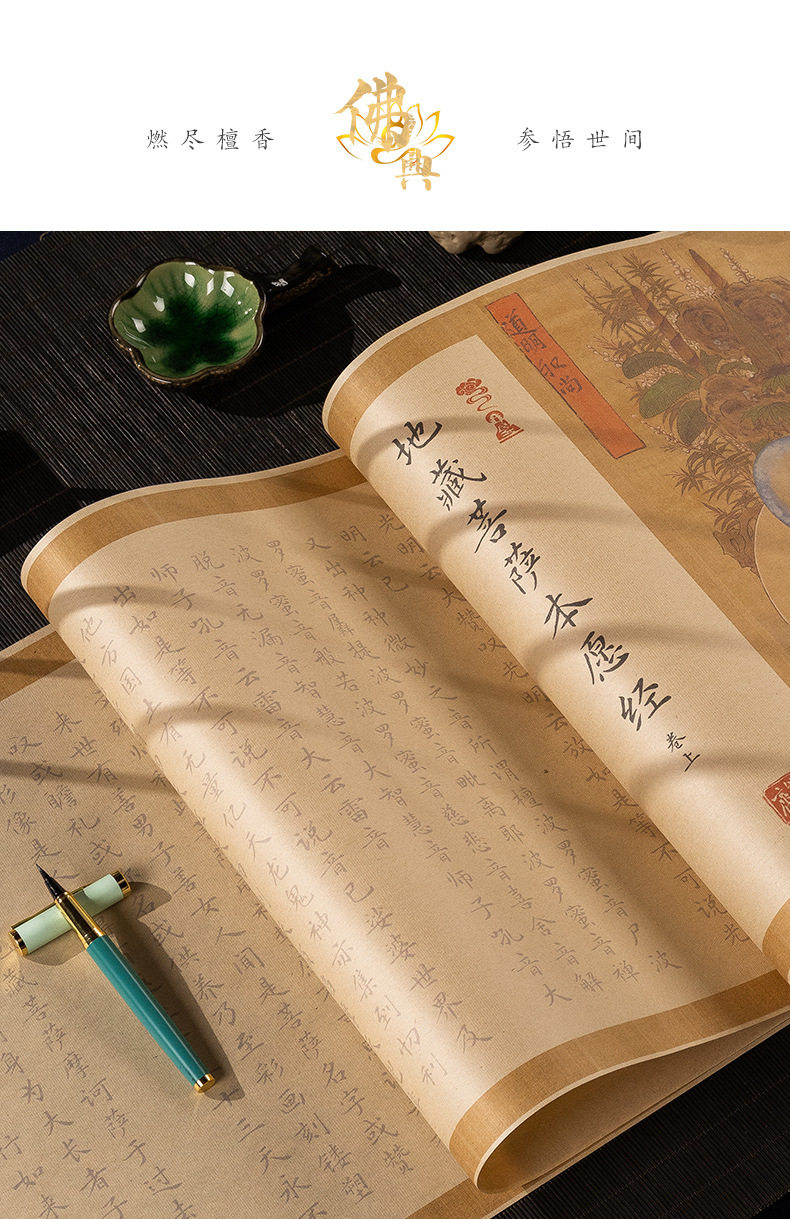 燃尽檀香
佛典
参悟世间
道明和尚
地藏菩萨本愿经
卷上
大赞叹光明云放如是等不可说光
明云已又出种种微妙之音所谓檀波罗蜜音尸波
罗蜜音羼提波罗蜜音毗离耶波罗蜜音禅波
罗蜜音般若波罗蜜音慈悲音喜舍音解
脱音无漏音智慧音大智慧音师子吼音大
师子吼音云雷音大云雷音
出如是等不可说不可说音已娑婆世界及
他方国土有无量亿天龙鬼神亦集到忉利
来世有善男子善女人闻是菩萨名字或赞
叹或瞻礼或供养乃至彩画刻镂塑
形像是人十三天永
藏菩萨摩诃萨于过去
身为大长者子
行如